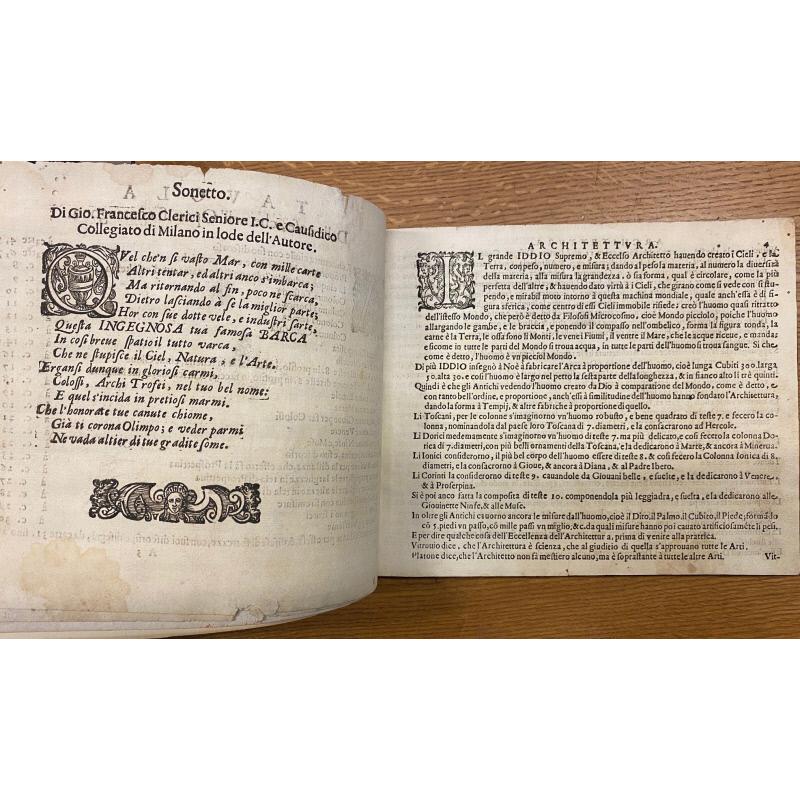 Sonetto.
Di Gio. Francesco Clerici Seniore I.C. e Causidico
Collegiato di Milano in lode dell'Autore.
QVel che'n si vasto Mar, con mille carte
Altri tentar, ed altri anco s'imbarca;
Ma ritornando al fin, poco ne scarca,
Dietro lasciando à se la miglior parte;
Hor con sue dotte vele, e industri sarte,
Questa INGEGNOSA tua famosa BARCA
In così breue spatio il tutto varca,
Che ne stupisce il Ciel, Natura, e l'Arte.
Ergansi dunque in gloriosi carmi,
Colossi, Archi Trofei, nel tuo bel nome;
E quel s'incida in pretiosi marmi.
Che l'honorate tue canute chiome,
Già ti corona Olimpo; e veder parmi
Ne vada altier di tue gradite some.
A 3
ARCHITETTVRA. 4
IL grande IDDIO Supremo, & Eccelso Architetto hauendo creato i Cieli, e la
Terra, con peso, numero, e misura; dando al peso la materia, al numero la diuersità
della materia, alla misura la grandezza, ò sia forma, qual è circolare, come la più
perfetta dell'altre, & hauendo dato virtù à i Cieli, che girano come si vede con sì stu-
pendo, e mirabil moto intorno à questa machina mondiale, quale anch'essa è di fi-
gura sferica, come centro di essi Cieli immobile risiede: creò l'huomo quasi ritratto
dell'istesso Mondo, che però è detto da Filosofi Microcosmo, cioè Mondo picciolo, poiche l'huomo
allargando le gambe, e le braccia, e ponendo il compasso nell'ombelico, forma la figura tonda, la
carne è la Terra, le ossa sono li Monti, le vene i Fiumi, il ventre il Mare, che le acque riceue, e manda;
e sicome in tutte le parti del Mondo si troua acqua, in tutte le parti dell'huomo si troua sangue. Si che
come è detto, l'huomo è vn picciol Mondo.
Di più IDDIO insegnò à Noè à fabricare l'Arca à proportione dell'huomo, cioè lunga Cubiti 300. larga
50. alta 30. e così l'huomo è largo nel petto la sesta parte della longhezza, & in fianco alto li tré quinti.
Quindi è che gli Antichi vedendo l'huomo creato da Dio à comparatione del Mondo, come è detto, e
con tanto bell'ordine, e proportione, anch'essi à similitudine dell'huomo hanno fondato l'Architettura,
dando la forma à Tempij, & altre fabriche à proportione di quello.
Li Toscani, per le colonne s'imaginorno vn'huomo robusto, e bene quadrato di teste 7. e fecero la co-
lonna, nominandola dal paese loro Toscana di 7. diametri, e la consacrorno ad Hercole.
Li Dorici medemamente s'imaginorno vn'huomo di teste 7. ma più delicato, e così fecero la colonna Do-
rica di 7. diametri, con più belli ornamenti della Toscana, e la dedicarono à Marte, & ancora à Minerua.
Li Ionici considerorno, il più bel corpo dell'huomo essere di teste 8. & così fecero la Colonna Ionica di 8.
diametri, e la consacrorno à Gioue, & ancora à Diana, & al Padre Ibero.
Li Corinti la considerorno di teste 9. cauandole da Giouani belle, e suelte, e la dedicarono à Venere,
& à Proserpina.
Si è poi anco fatta la composita di teste 10. componendola più leggiadra, e suelta, e la dedicarono alle
Giouinette Ninfe, & alle Muse.
In oltre gli Antichi cauorno ancora le misure dall'huomo, cioè il Dito, il Palmo, il Cubito, il Piede, formãdo
cõ 5. piedi vn passo, cõ mille passi vn miglio, &c. da quali misure hanno poi cauato artificiosamẽte li pesi.
E per dire qualche cosa dell'Eccellenza dell'Architettura, prima di venire alla prattica.
Vitruuio dice, che l'Architettura è scienza, che al giuditio di quella s'approuano tutte le Arti.
Platone dice, che l'Architetto non fà mestiero alcuno, ma è soprastante à tutte le altre Arti.
Vit-